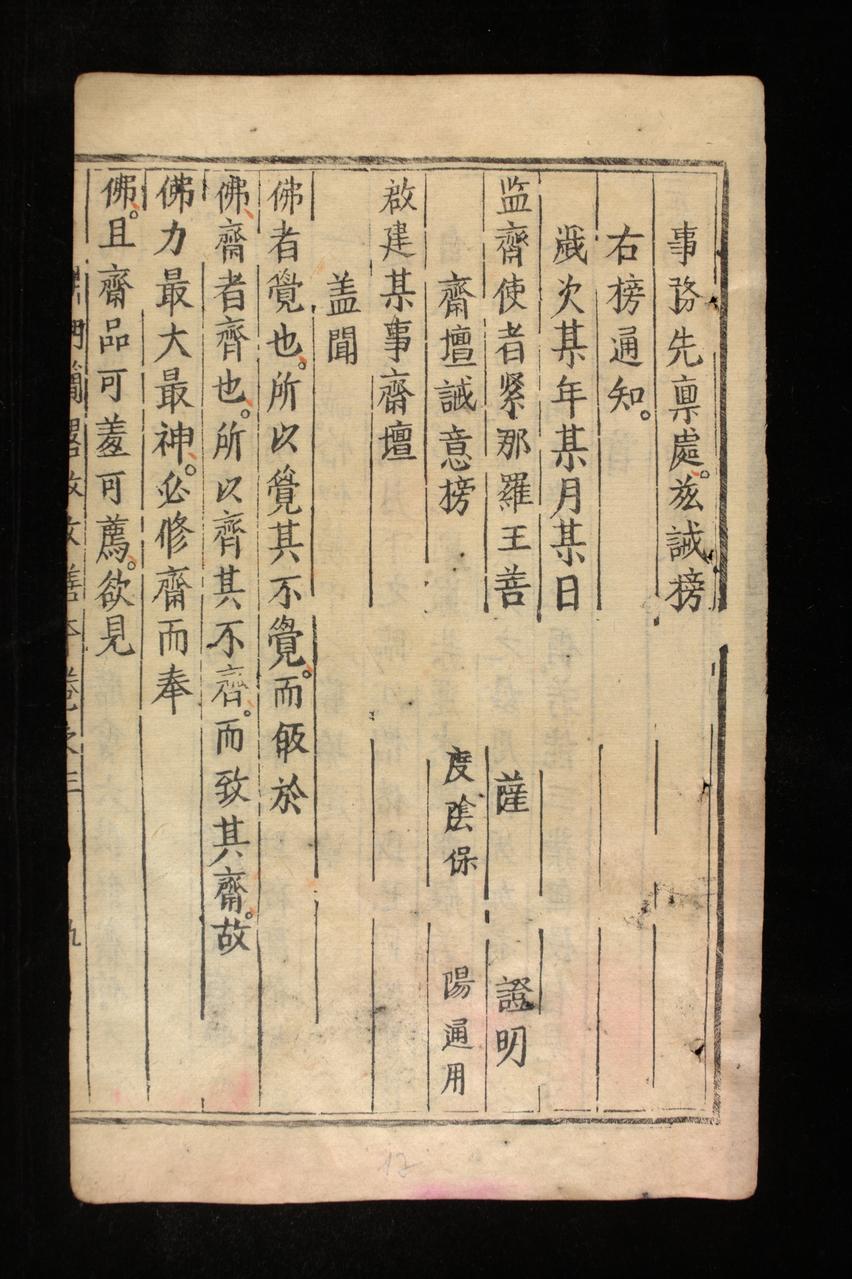 事务先禀處。兹誠榜
右榜通知。
歲次某年某月某日
监齊使者紧那羅王善 薩 證明
齋壇誠意榜 度陰保 陽通用
啟建某事齋壇
盖聞
佛者覺也。所以覺其不覺。而皈於
佛。齋者齊也。所以齊其不齊。而致其齋。故
佛力最大最神。必修齋而奉
佛。且齋品可羞可薦。欲見
門 善 卷 九
12